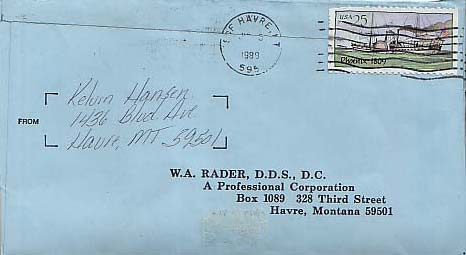 HAVRE, MT
1989
595
USA 25
Phoenix 1809
Kelvin Hansen
1436 Blvd Ave
FROM
Havre, MT 59501
W.A. RADER, D.D.S., D.C.
A Professional Corporation
Box 1089 328 Third Street
Havre, Montana 59501